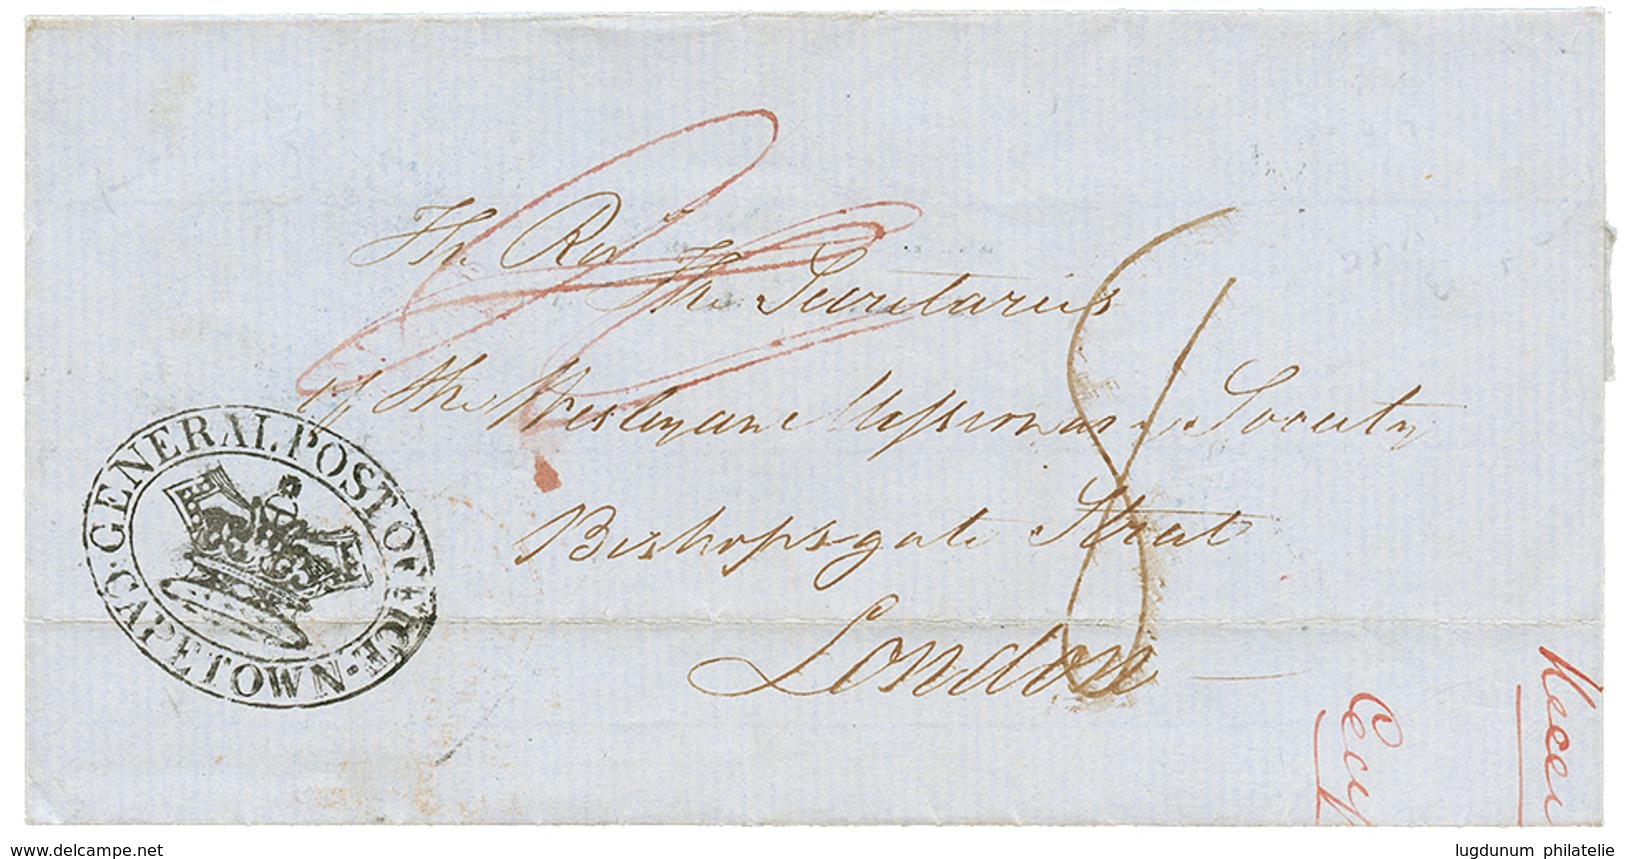 The Rev
The Secretaries
of the Wesleyan Missionary Society
Bishopsgate Street
London
8
GENERAL POST OFFICE · CAPETOWN ·
delcampe.net
lugdunum philatelie